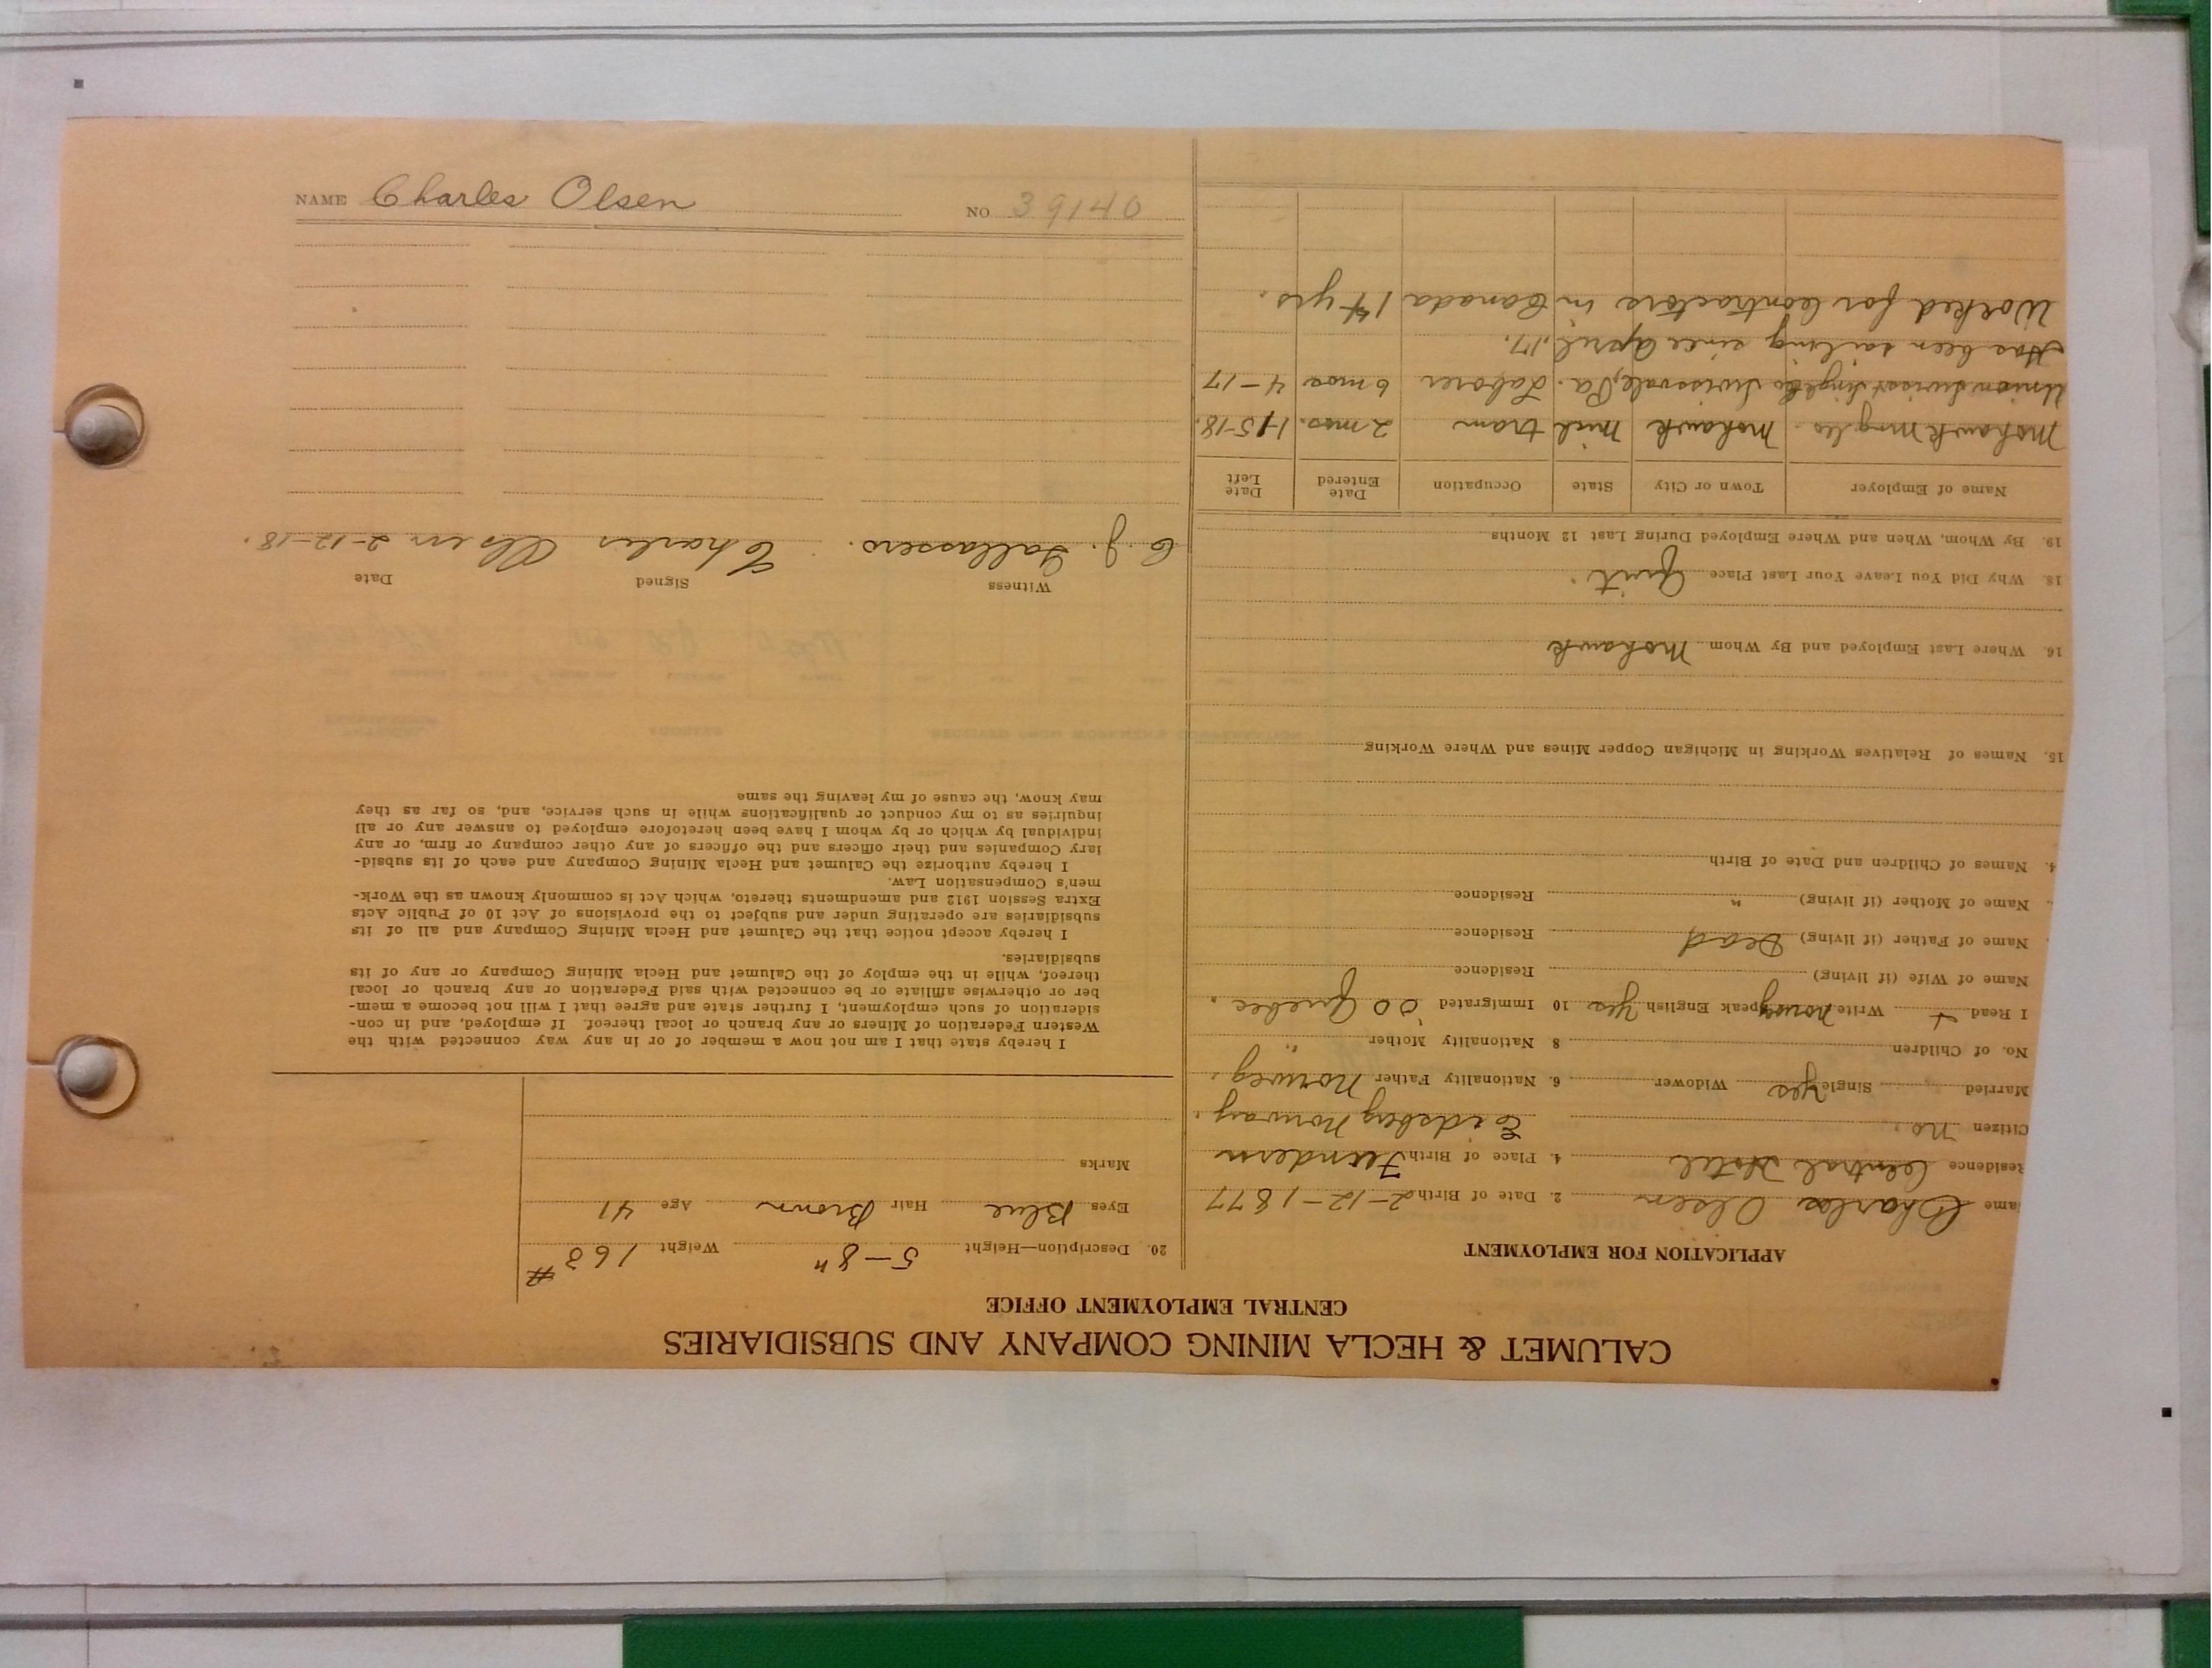 CALUMET & HECLA MINING COMPANY AND SUBSIDIARIES
CENTRAL EMPLOYMENT OFFICE
APPLICATION FOR EMPLOYMENT
ame Charles Olsen 2. Date of Birth 2-12-1877
Residence Central Hotel 4. Place of Birth
Citizen no. Eidsberg Norway.
Married Single yes Widower 6. Nationality Father Norweg.
No. of Children 8 Nationality Mother "
I Read + Write Norweg Speak English yes 10 Immigrated '00 Quebec.
Name of Wife (if living) Residence
Name of Father (if living) Dead Residence
Name of Mother (if living) " Residence
4. Names of Children and Date of Birth
15. Names of Relatives Working in Michigan Copper Mines and Where Working
16. Where Last Employed and By Whom Mohawk
18. Why Did You Leave Your Last Place Quit.
19. By Whom, When and Where Employed During Last 12 Months
Name of Employer Town or City State Occupation Date Entered Date Left
Mohawk Mng Co. Mohawk Mich tram 2 mos. 1-15-18.
Union Swisst Signal Co Swissvale, Pa. Laborer 6 mos 4-17
Has been sailing since April, 17.
Worked for Contractors in Canada 14 yrs.
20. Description—Height 5-8" Weight 163 #
Eyes Blue Hair Brown Age 41
Marks
I hereby state that I am not now a member of or in any way connected with the
Western Federation of Miners or any branch or local thereof. If employed, and in con-
sideration of such employment, I further state and agree that I will not become a mem-
ber or otherwise affiliate or be connected with said Federation or any branch or local
thereof, while in the employ of the Calumet and Hecla Mining Company or any of its
subsidiaries.
I hereby accept notice that the Calumet and Hecla Mining Company and all of its
subsidiaries are operating under and subject to the provisions of Act 10 of Public Acts
Extra Session 1912 and amendments thereto, which Act is commonly known as the Work-
men's Compensation Law.
I hereby authorize the Calumet and Hecla Mining Company and each of its subsid-
iary Companies and their officers and the officers of any other company or firm, or any
individual by which or by whom I have been heretofore employed to answer any or all
inquiries as to my conduct or qualifications while in such service, and, so far as they
may know, the cause of my leaving the same
Witness Signed Date
C. J. Charles Olsen 2-12-18.
NAME Charles Olsen NO 39140